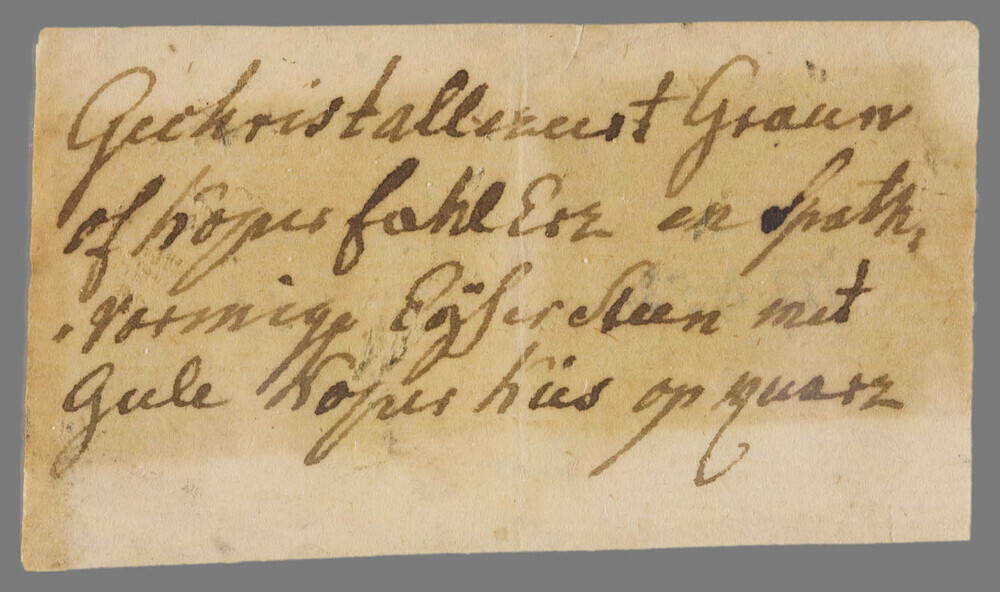 Gechristalliseert Graauw
of koper fahl Erz en spath,
, vormige Eÿser Steen met
Gele koper kies op quarz